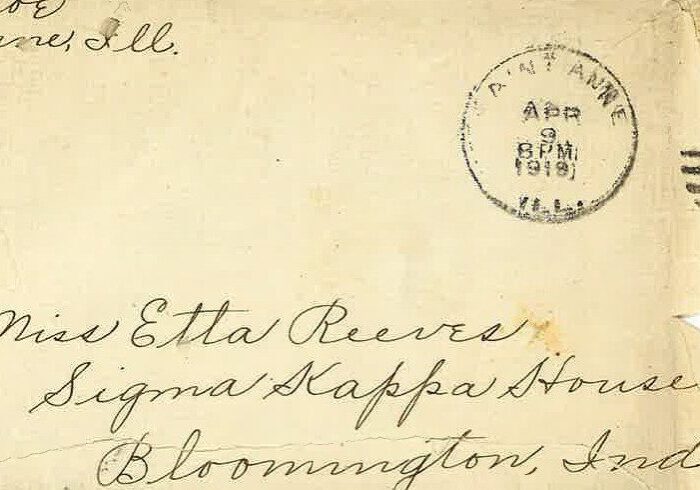 Ill.
SAINT ANNE
APR
9
8 PM
1919
ILL.
Miss Etta Reeves
Sigma Kappa House
Bloomington, Ind